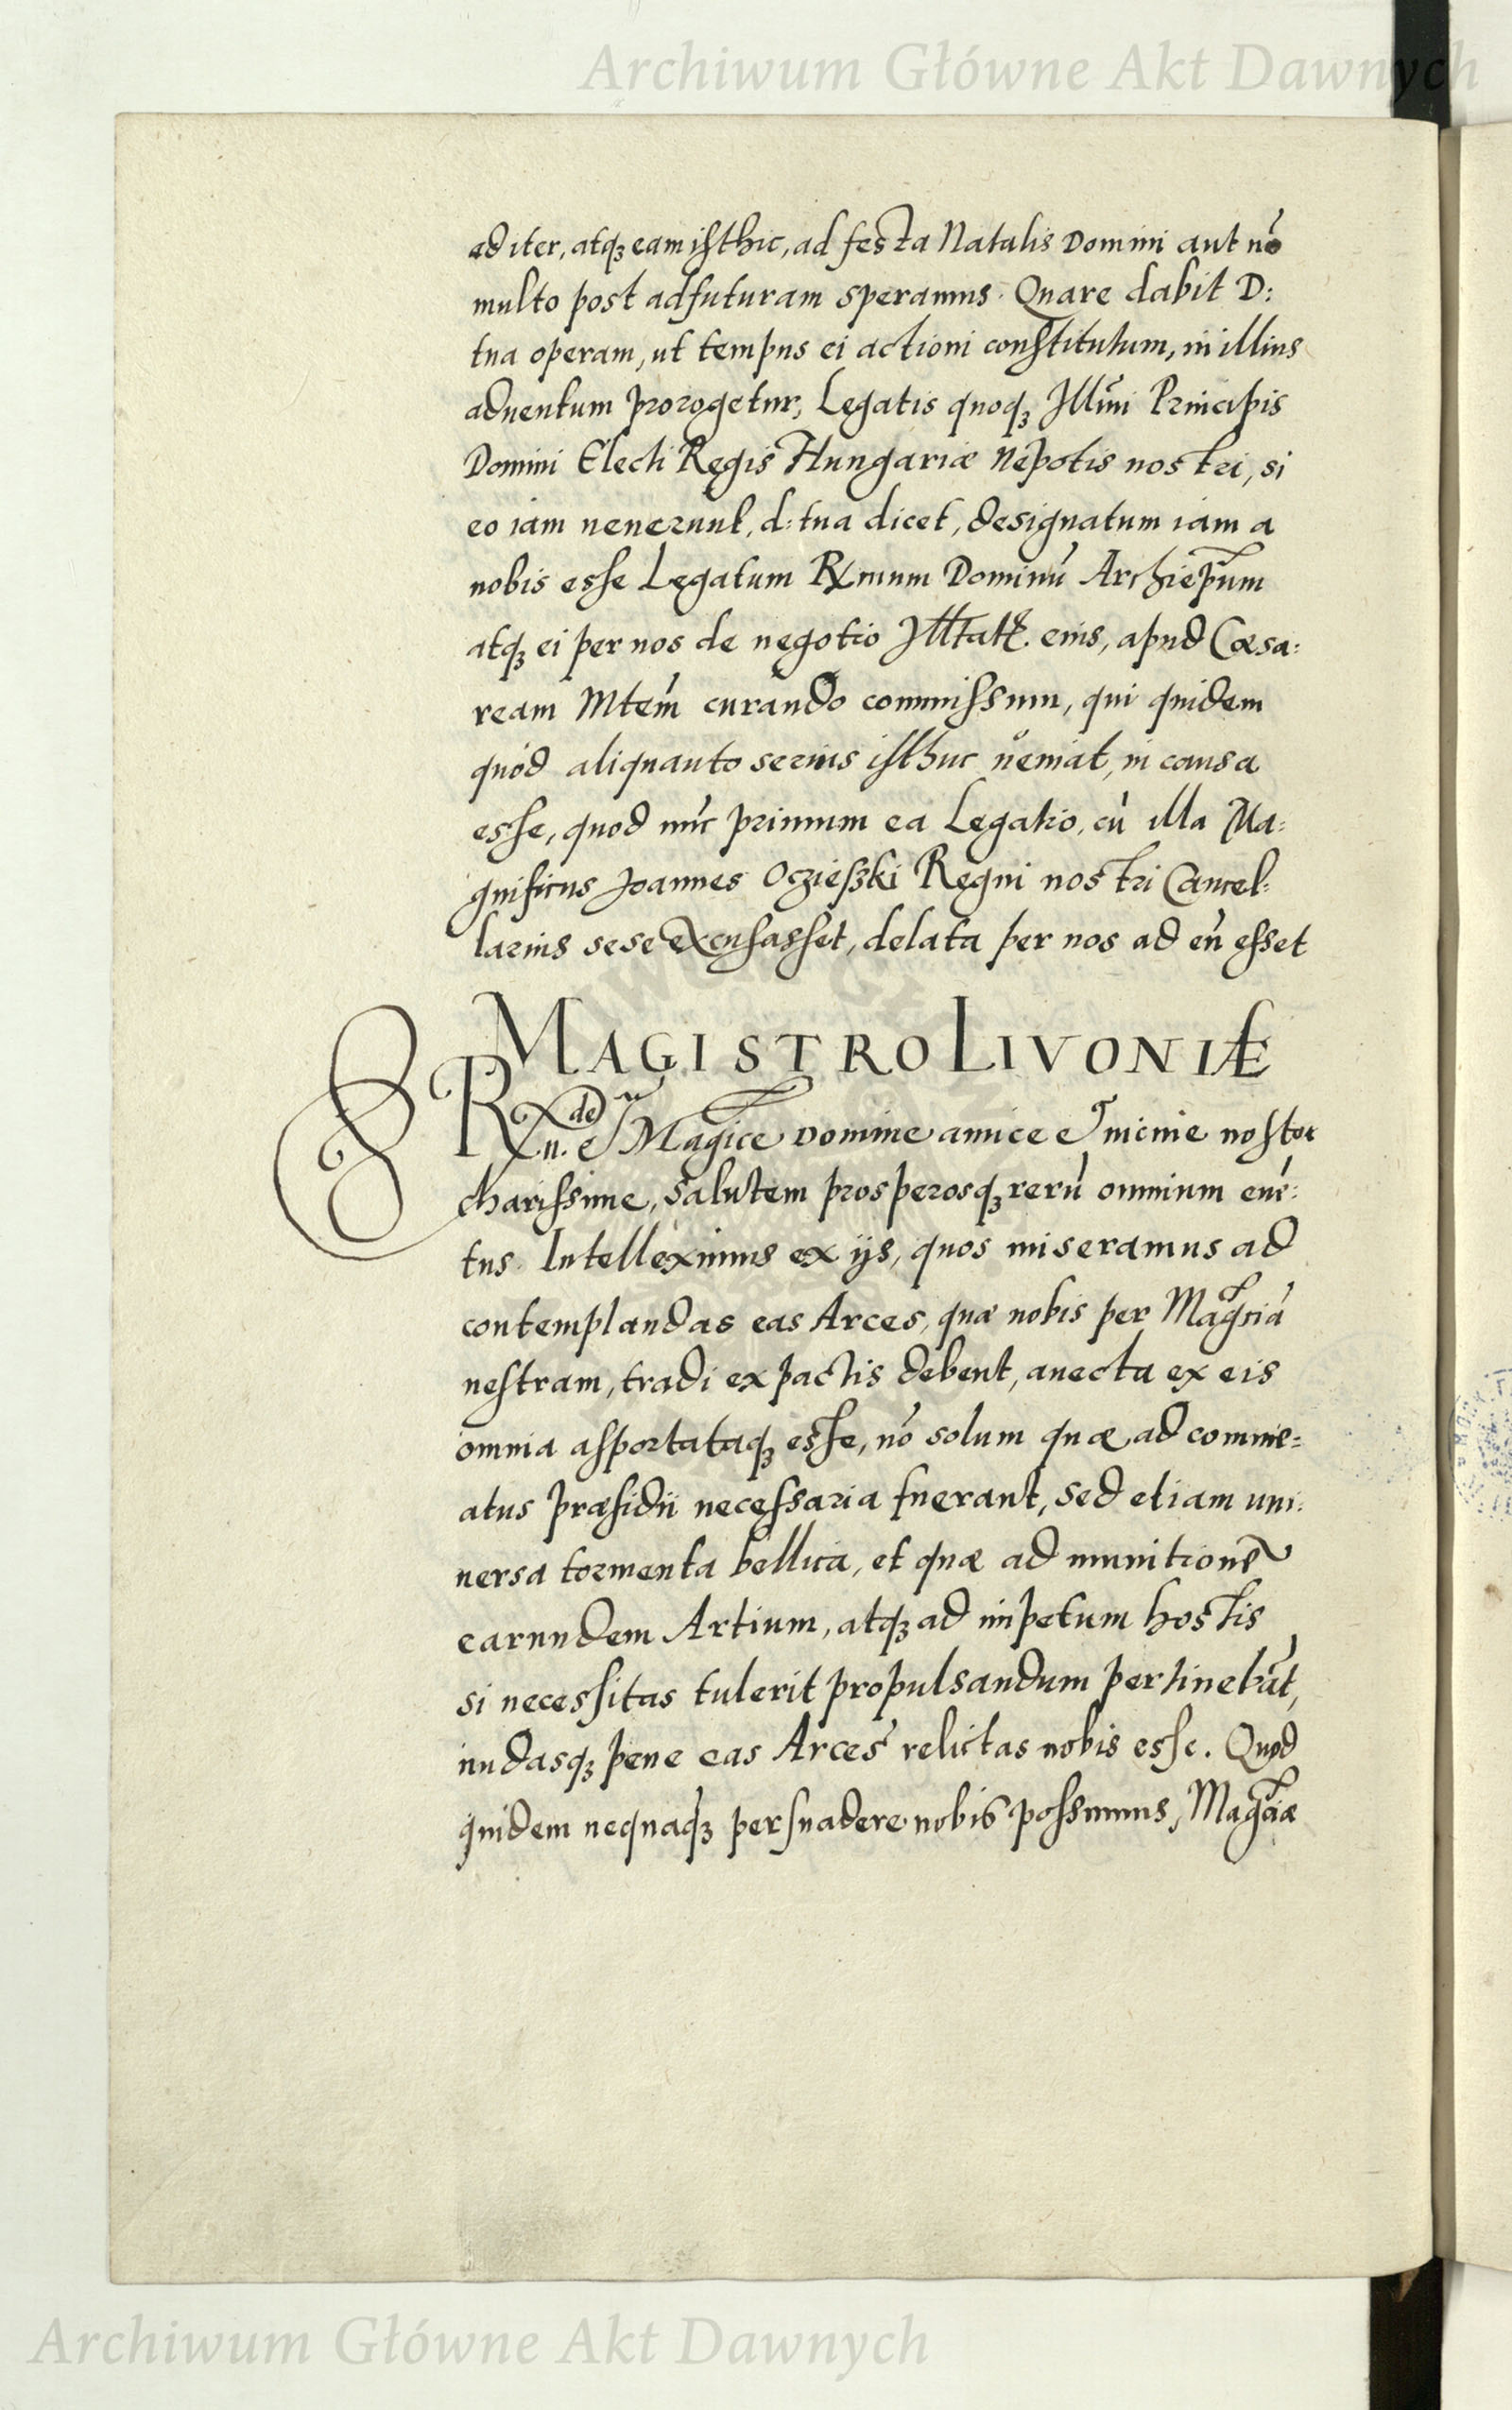 Archiwum Główne Akt Dawnych
ad iter, atq₃ eam isthic, ad festa Natalis Domini aut nō
multo post adfuturam speramus. Quare dabit D:
tua operam, ut tempus ei actioni constitutum, in illius
aduentum prorogetur, Legatis quoq₃ Illm̄i Principis
Domini Electi Regis Hungariæ Nepotis nostri, si
eo iam uenerunt, d: tua dicet, designatum iam a
nobis esse Legatum Rxmum Dominū Archiep̄um
atq₃ ei per nos de negotio eius, apud Cæsa:
ream Mtem̄ curando commissum, qui quidem
quòd aliquanto serius isthuc ueniat, in causa
esse, quod nūc primum ea Legatio, cū illa Ma:
gnificus Joannes Oczieszki Regni nostri Cancel:
larius sese excusasset, delata per nos ad eū esset
MAGISTRO LIVONIÆ
Magice Domine amice et uicine noster
charissime, Salutem prosperosq₃ rerū omnium euē:
tus. Intelleximus ex ijs, quos miseramus ad
contemplandas eas Arces, quæ nobis per Magciā
uestram, tradi ex pactis debent, auecta ex eis
omnia asportataq₃ esse, nō solum quæ ad comme=
atus præsidii necessaria fuerant, sed etiam uni:
uersa tormenta bellica, et quæ ad munitionē
earundem Artium, atq₃ ad impetum hostis
si necessitas tulerit propulsandum pertinebāt,
nudasq₃ pene eas Arces relictas nobis esse. Quod
quidem nequaq̄₃ persuadere nobis possumus, Magciæ
Archiwum Główne Akt Dawnych